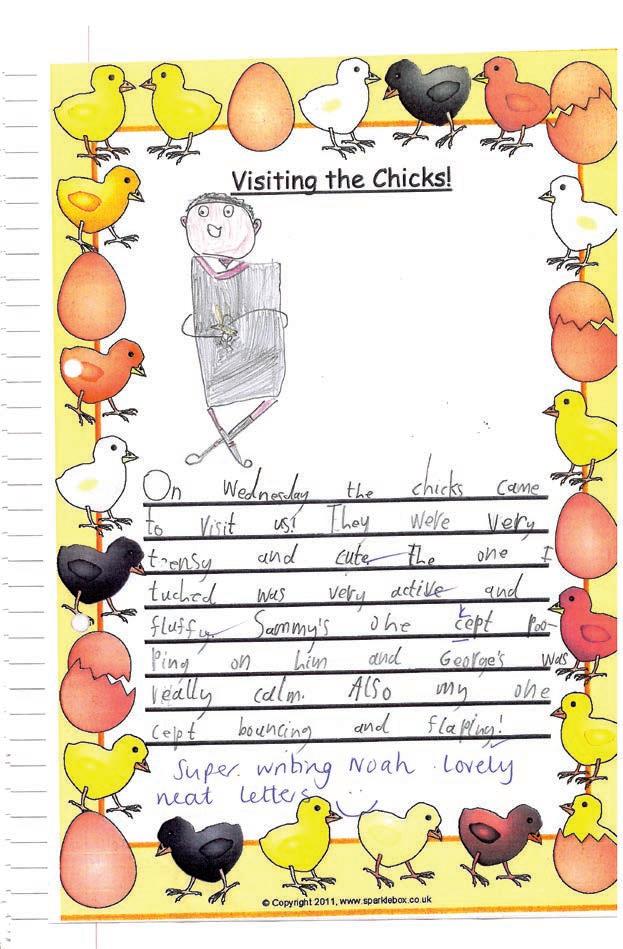 Visiting the Chicks!
On Wednesday the chicks came
to visit us! They were very
teensy and cute The one I
tuched was very active and
fluffy Sammy's one cept poo-
Ping on him and George's was
really calm. Also my one
cept bouncing and flaping!
Super writing Noah. Lovely
neat letters
© Copyright 2011, www.sparklebox.co.uk